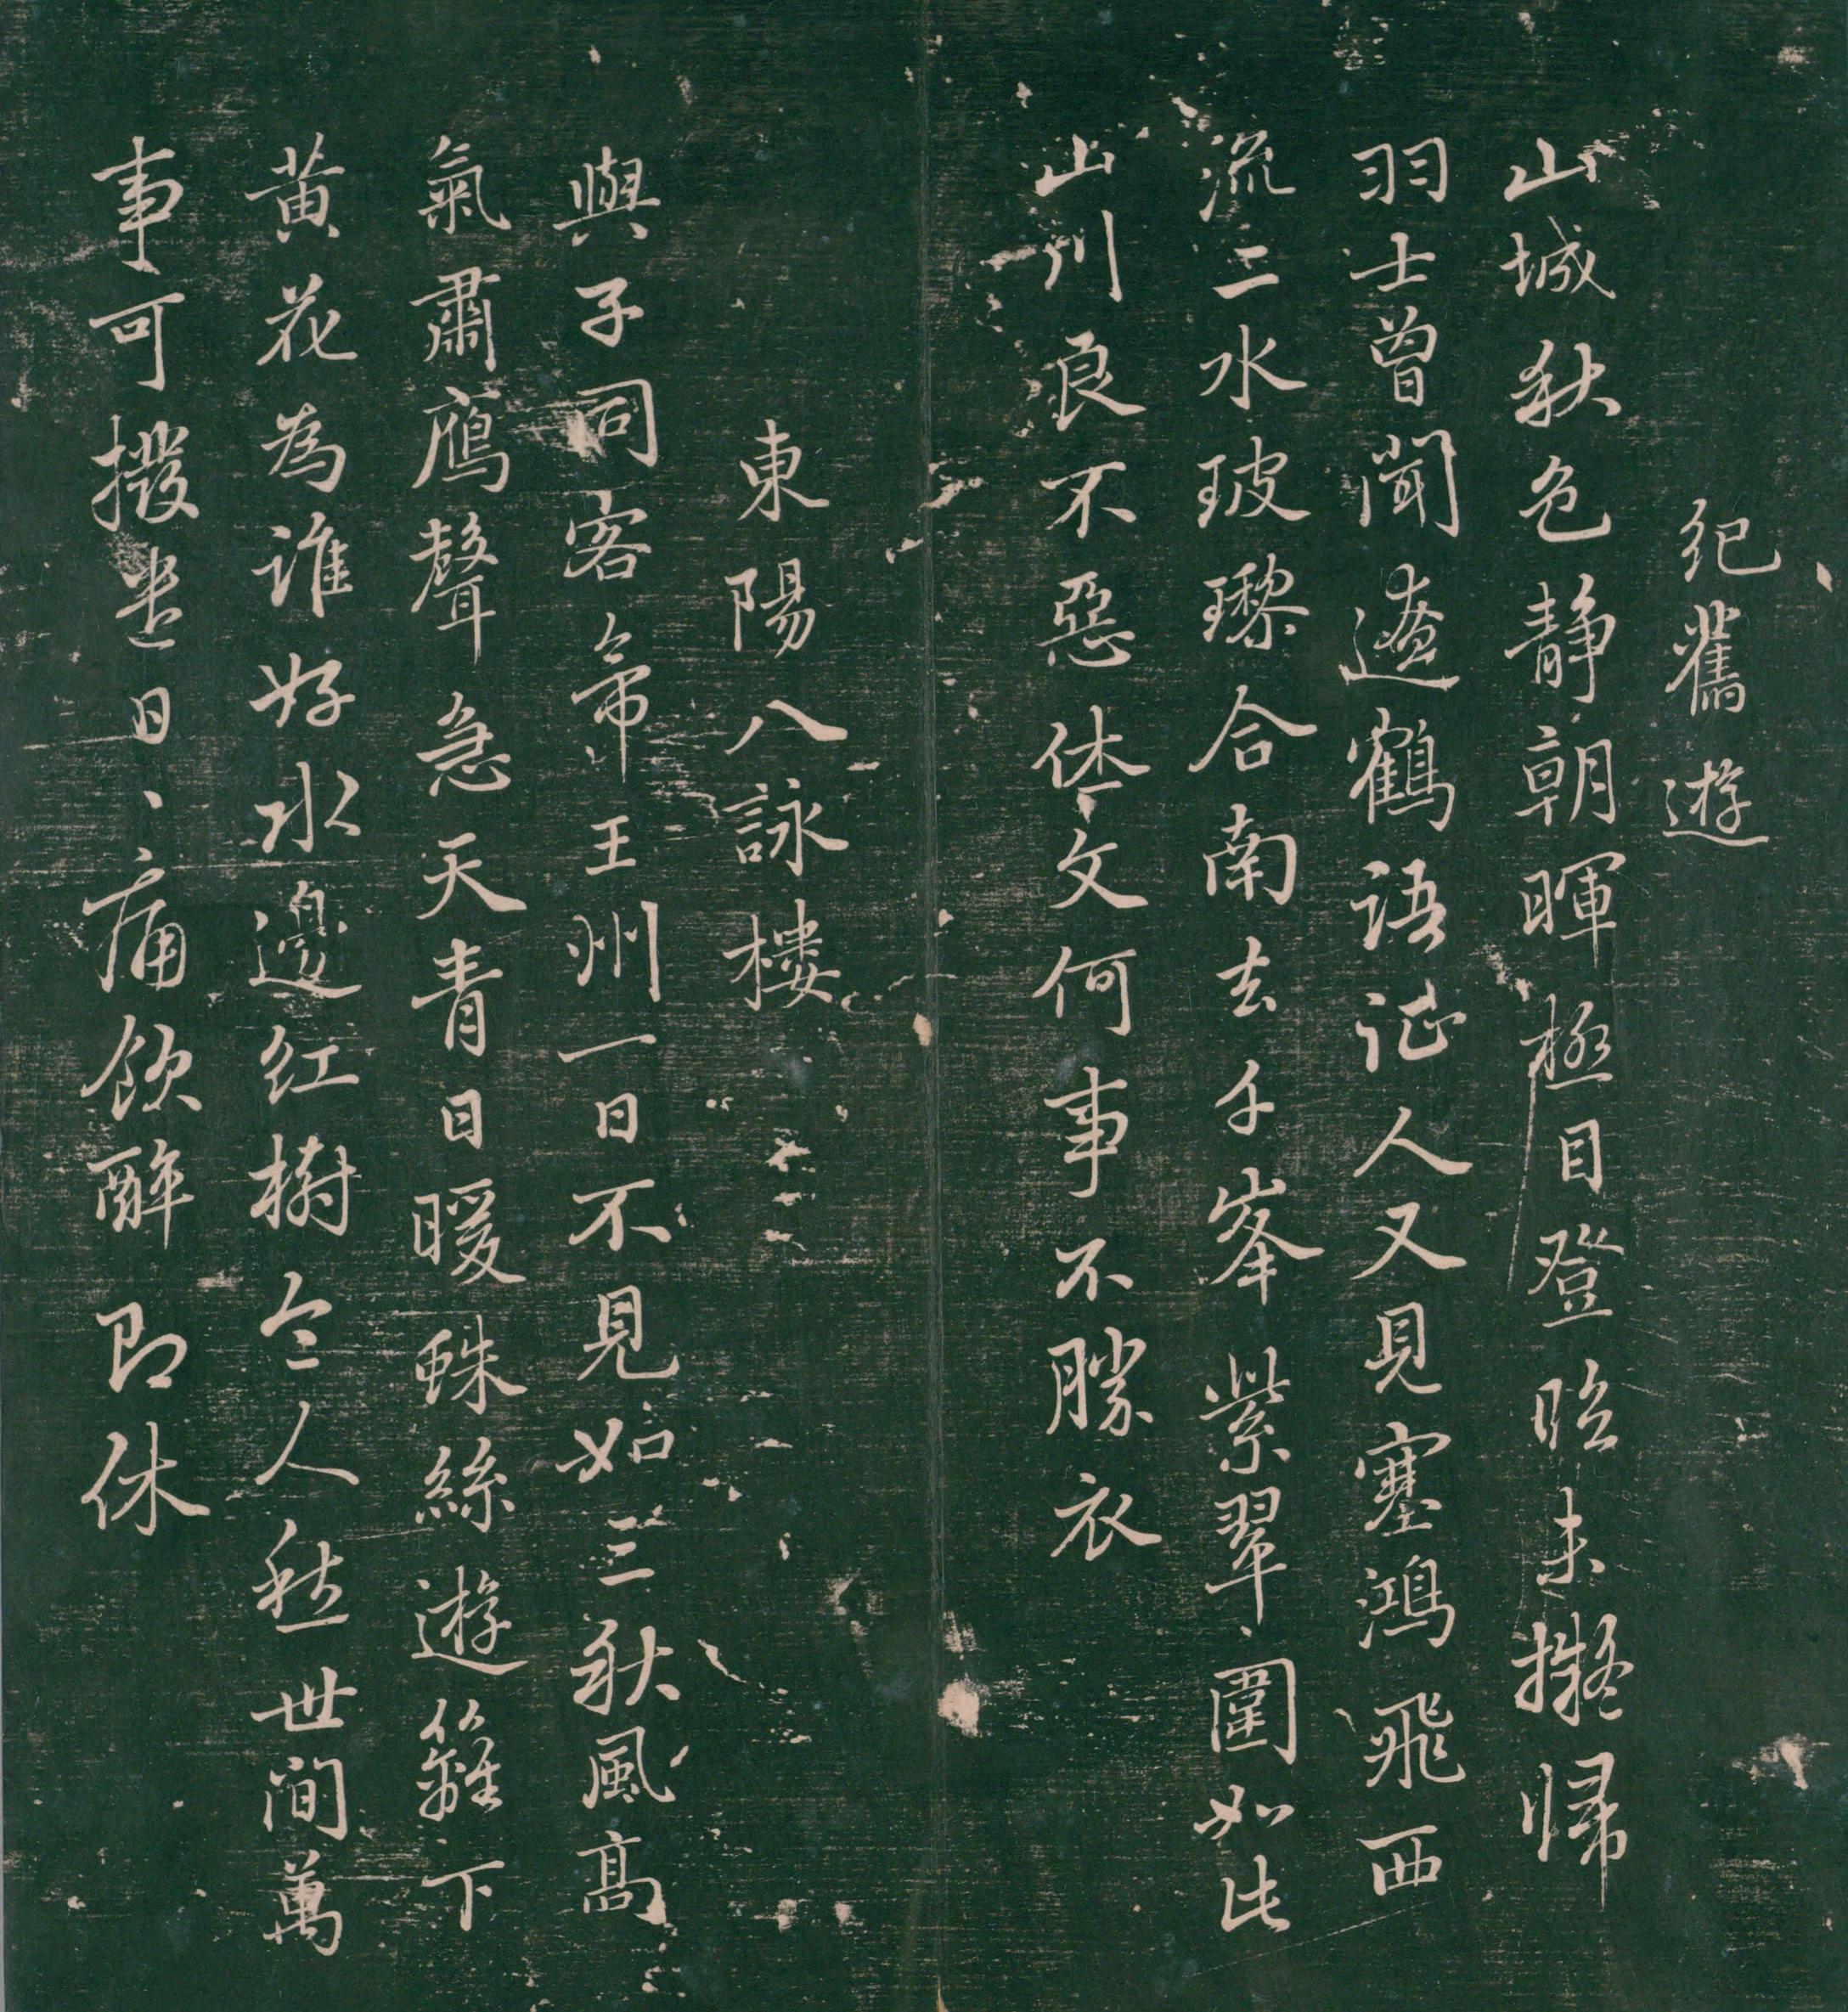 紀舊遊
山城秋色静朝暉極目登臨未擬歸
羽士曾聞遼鶴語征人又見塞鴻飛西
流二水玻瓈合南去千峯紫翠圍如此
山川良不惡休文何事不勝衣
東陽八詠樓
與子同客帝王州一日不見如三秋風高
氣肅鴈聲急天青日暖蛛絲遊籬下
黄花為誰好水邊紅樹令人愁世間萬
事可撥遣日、痛飲醉即休